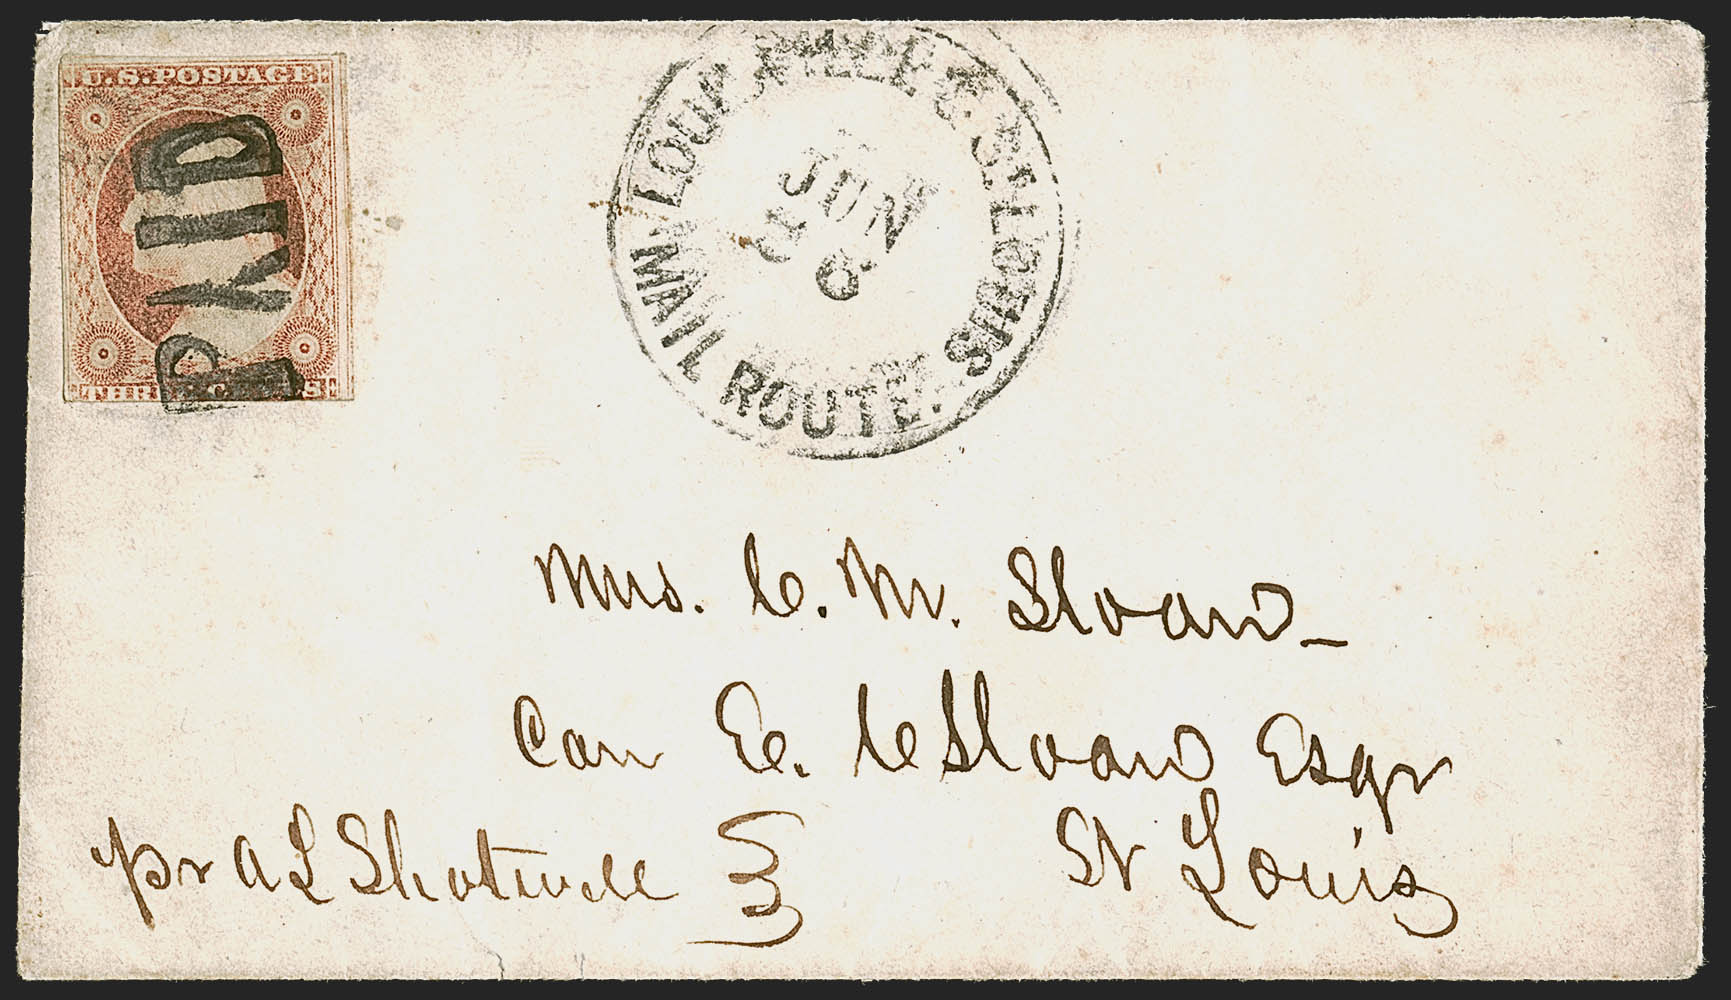 U.S. POSTAGE
PAID
THREE CENTS
LOUISVILLE & ST. LOUIS
MAIL ROUTE.
JUN
6
Mrs. C. M. Sloan
Care E. C Sloan Esqr
St Louis
pr A L Shotwell